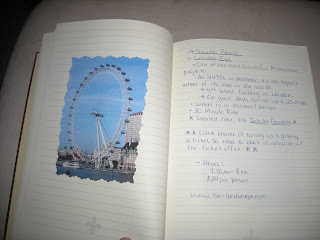 → South Bank
- London Eye
• One of the most successful Millennium
projects
• At 443 ft in diameter, it is the biggest
wheel of its kind in the world.
• 4th tallest building in London
• On good days, can see up to 25 miles
• Wheel is in constant motion
• 30 Minute Ride
* Located near the Jubilee Gardens *
** Little chance of turning up & getting
a ticket, so need to book in advance at
the ticket office. **
- Hours:
9:30 am - 8 pm
per person
www.ba-londoneye.com